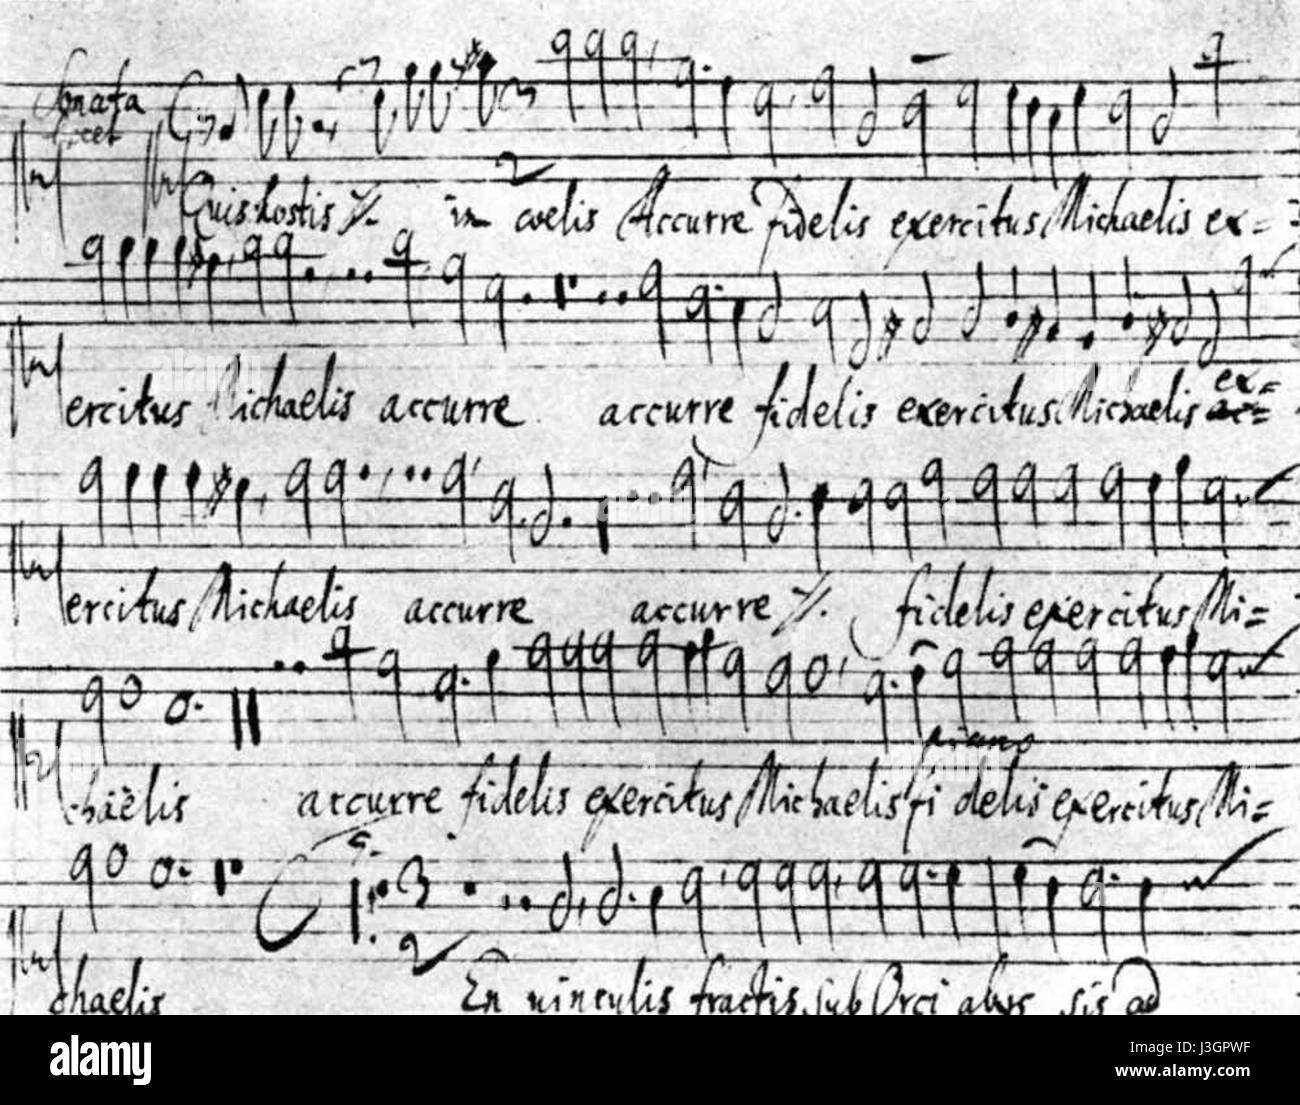 Sonata
tacet
Quis hostis ·/. in coelis Accurre fidelis exercitus Michaelis ex=
ercitus Michaelis accurre accurre fidelis exercitus Michaelis ex=
ercitus Michaelis accurre accurre ·/. fidelis exercitus Mi=
piano
chaëlis accurre fidelis exercitus Michaelis fi delis exercitus Mi=
chaelis En vinculis fractis sub Orci abys sis ad
alamy
Image ID: J3GPWF
www.alamy.com